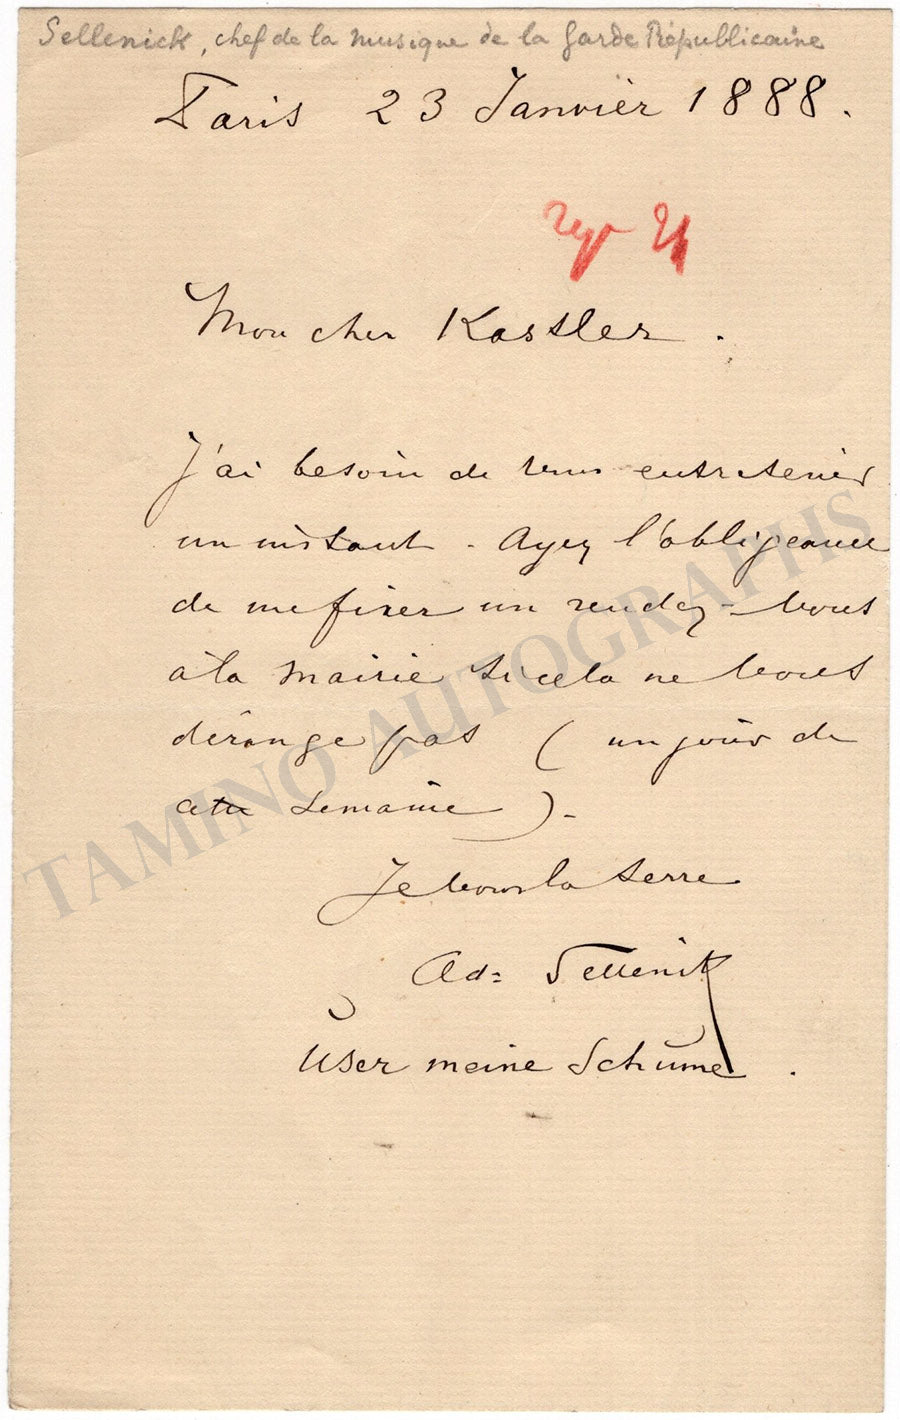 Sellenick, chef de la musique de la Garde Républicaine
Paris 23 Janvier 1888.
Mon cher Kastler.
J'ai besoin de vous entretenir
un instant - Ayez l'obligeance
de me fixer un rendez-vous
à la mairie si cela ne vous
dérange pas ( un jour de
cette semaine ) -
Je vous la serre
Ad= Sellenick
User meine Schume .
TAMINO AUTOGRAPHS